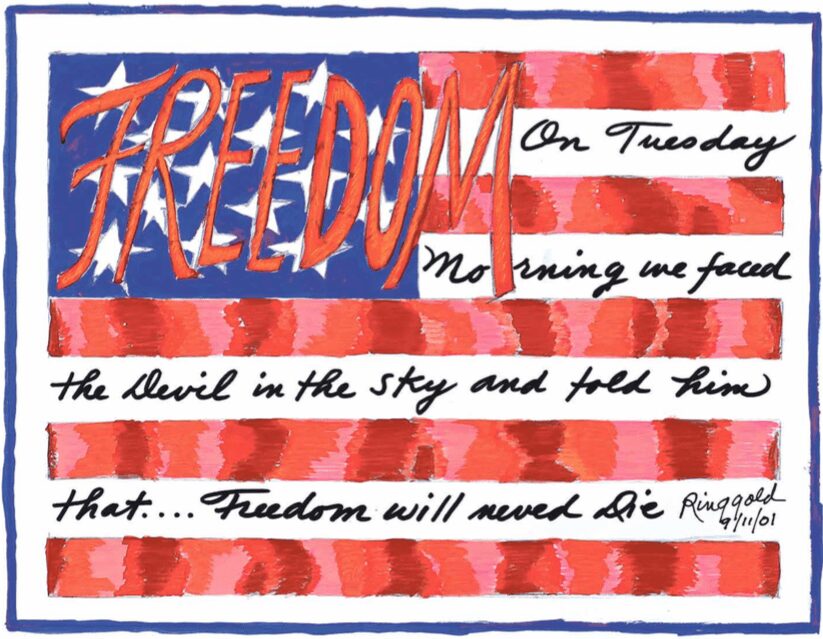 FREEDOM
On Tuesday
Morning we faced
the Devil in the sky and told him
that.... Freedom will neved Die
Ringgold
9/11/01